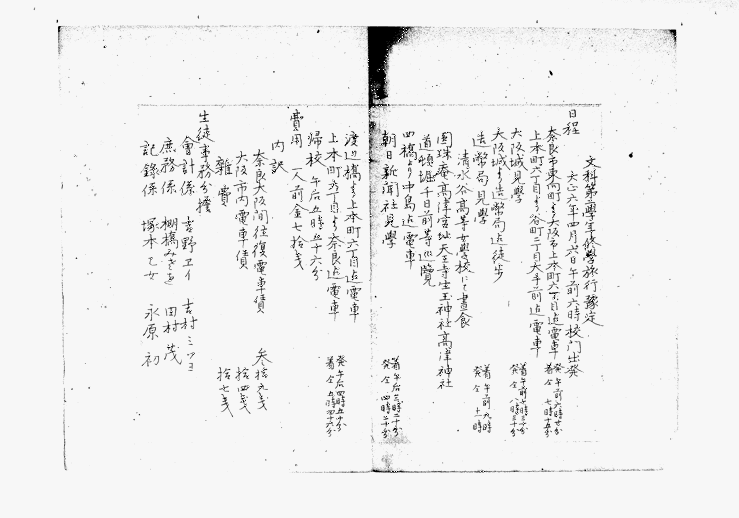 文科第一學年修學旅行豫定
日程
大正六年四月六日午前六時校門出發
奈良市東向町ヨリ大阪市上本町六丁目迄電車
發午前六時廿分
着仝 七時十五分
上本町六丁目ヨリ谷町二丁目大手前迄電車
大阪城見學
着午前七時三十分
發仝 八時三十分
大阪城ヨリ造幣局迄徒歩
造幣局見學
着午前九時
發仝 十一時
清水谷高等女學校にて晝食
圓珠庵高津宮址天王寺生玉神社高津神社
道頓堀千日前等巡覽
四橋より中島迄電車
朝日新聞社見學
着午后三時二十分
發仝 四時二十分
渡辺橋ヨリ上本町六丁目迄電車
上本町六丁目ヨリ奈良迄電車
發午后四時五十分
着仝 五時四十六分
帰校 午后五時五十六分
費用 一人前金七拾銭
内訳
奈良大阪間往復電車賃 参拾九銭
大阪市内電車賃 拾四銭
雜費 拾七銭
生徒事務分擔
會計係 吉野エイ 吉村ミツヨ
庶務係 棚橋みさを 田村茂
記錄係 塚本乙女 永原初